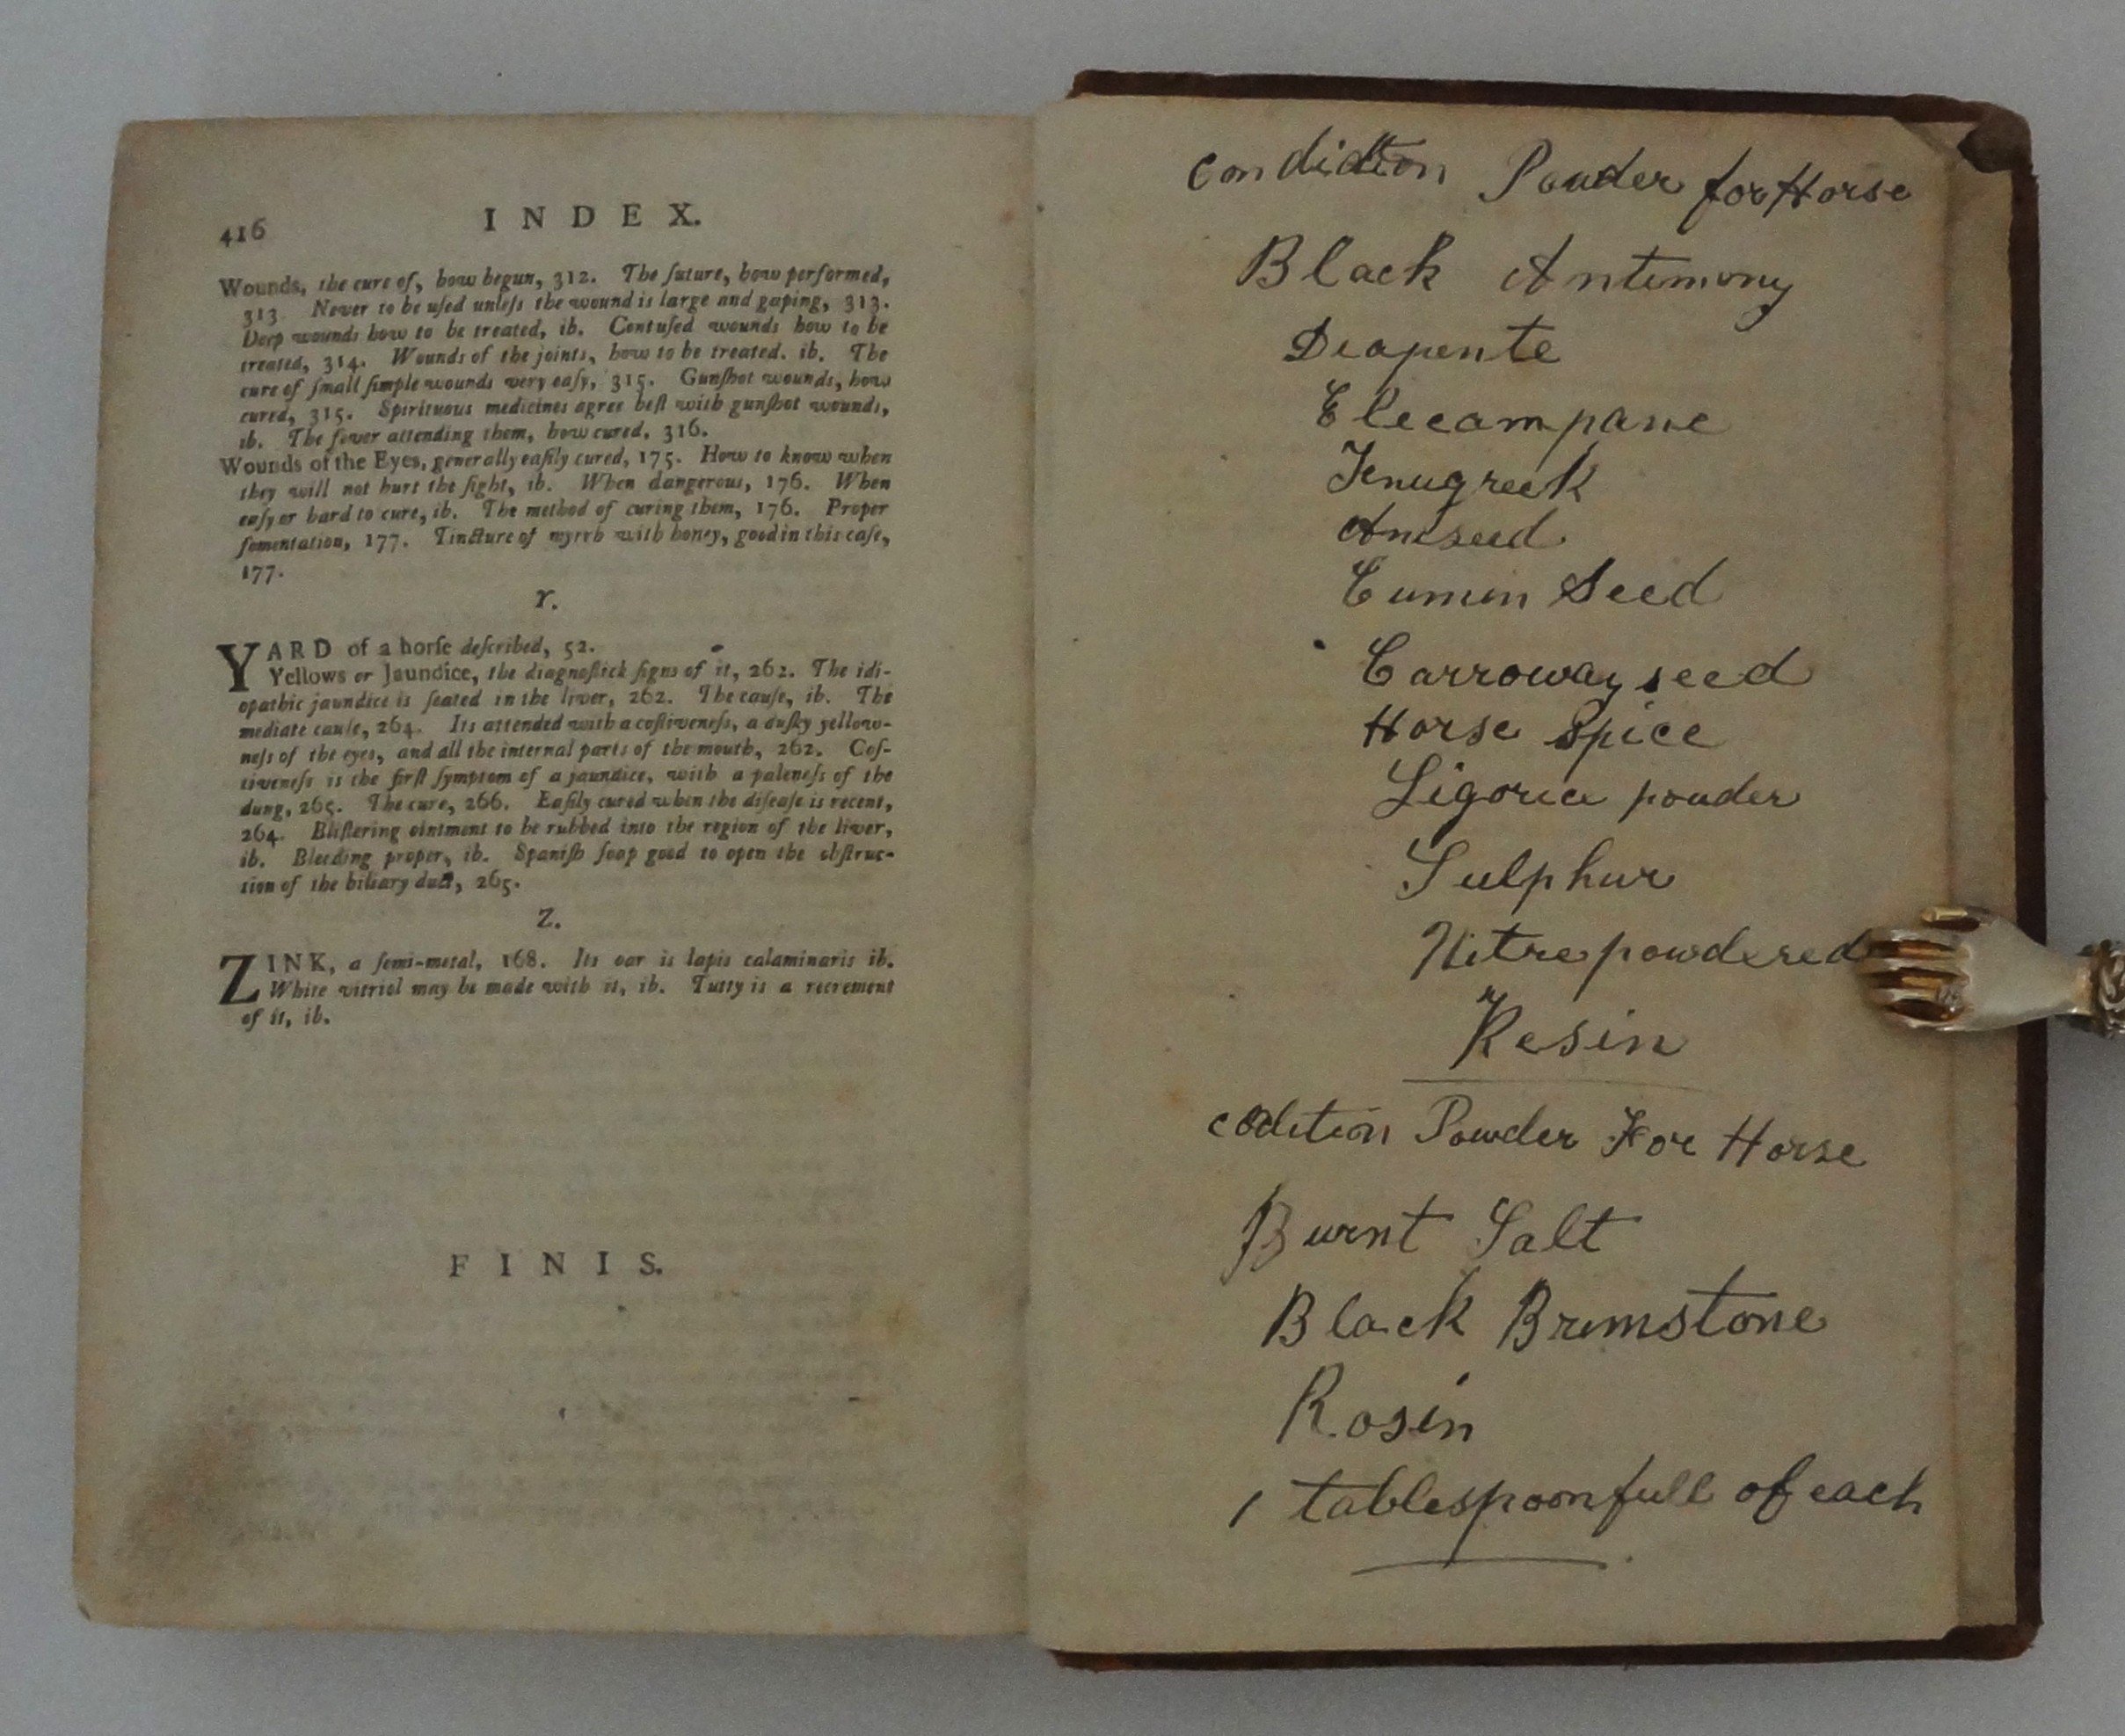 416
INDEX.
Wounds, the cure of, how begun, 312. The ſuture, how performed,
313. Never to be uſed unleſs the wound is large and gaping, 313.
Deep wounds how to be treated, ib. Contuſed wounds how to be
treated, 314. Wounds of the joints, how to be treated. ib. The
cure of ſmall ſimple wounds very eaſy, 315. Gunſhot wounds, how
cured, 315. Spirituous medicines agree beſt with gunſhot wounds,
ib. The fever attending them, how cured, 316.
Wounds of the Eyes, generally eaſily cured, 175. How to know when
they will not hurt the ſight, ib. When dangerous, 176. When
eaſy or hard to cure, ib. The method of curing them, 176. Proper
fomentation, 177. Tincture of myrrh with honey, good in this caſe,
177.
Y.
YARD of a horſe deſcribed, 52.
Yellows or Jaundice, the diagnoſtick ſigns of it, 262. The idi-
opathic jaundice is ſeated in the liver, 262. The cauſe, ib. The
mediate cauſe, 264. Its attended with a coſtiveneſs, a duſky yellow-
neſs of the eyes, and all the internal parts of the mouth, 262. Coſ-
tiveneſs is the firſt ſymptom of a jaundice, with a paleneſs of the
dung, 265. The cure, 266. Eaſily cured when the diſeaſe is recent,
264. Bliſtering ointment to be rubbed into the region of the liver,
ib. Bleeding proper, ib. Spaniſh ſoap good to open the obſtruc-
tion of the biliary duct, 265.
Z.
ZINK, a ſemi-metal, 168. Its oar is lapis calaminaris ib.
White vitriol may be made with it, ib. Tutty is a recrement
of it, ib.
FINIS.
Condidtion Pouder for Horse
Black Antimony
Diapente
Elecampane
Fenugreek
Aniseed
Cumin Seed
Carroway seed
Horse Spice
Ligorice pouder
Sulphur
Nitre powdered
Resin
codition Powder For Horse
Burnt Salt
Black Brimstone
Rosin
1 tablespoonfull of each